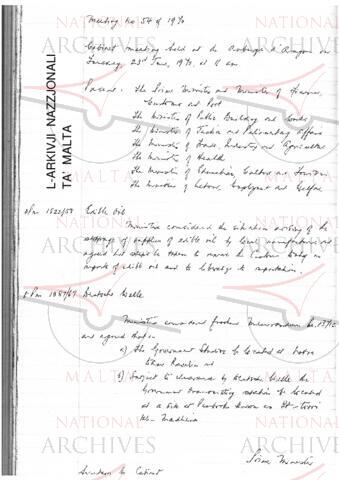 Meeting no 54 of 1970
Cabinet meeting held at the Auberge d'Aragon on
Tuesday, 23rd June, 1970, at 11 am
Present: The Prime Minister and Minister of Finance,
Customs and Port
The Minister of Public Building and Works
The Minister of Justice and Parliamentary Affairs
The Minister of Trade, Industry and Agriculture
The Minister of Health
The Minister of Education, Culture and Tourism
The Minister of Labour, Employment and Welfare
L-ARKIVJI NAZZJONALI
TA' MALTA
Edible Oil
Ministers considered the situation arising of the
stoppage of supplies of edible oil by local manufacturers and
agreed that steps be taken to remove the
imports of edible oil and to liberalize its importation.
Deutsche Welle
Ministers considered further Memorandum No.
and agreed that:
a) The Government Studios be located at
b) Subject to clearance by Deutsche Welle the
Government transmitting station be located
at a site at Pembroke known as
Madliena
Prime Minister
Secretary to Cabinet
NATIONAL
ARCHIVES
MALTA